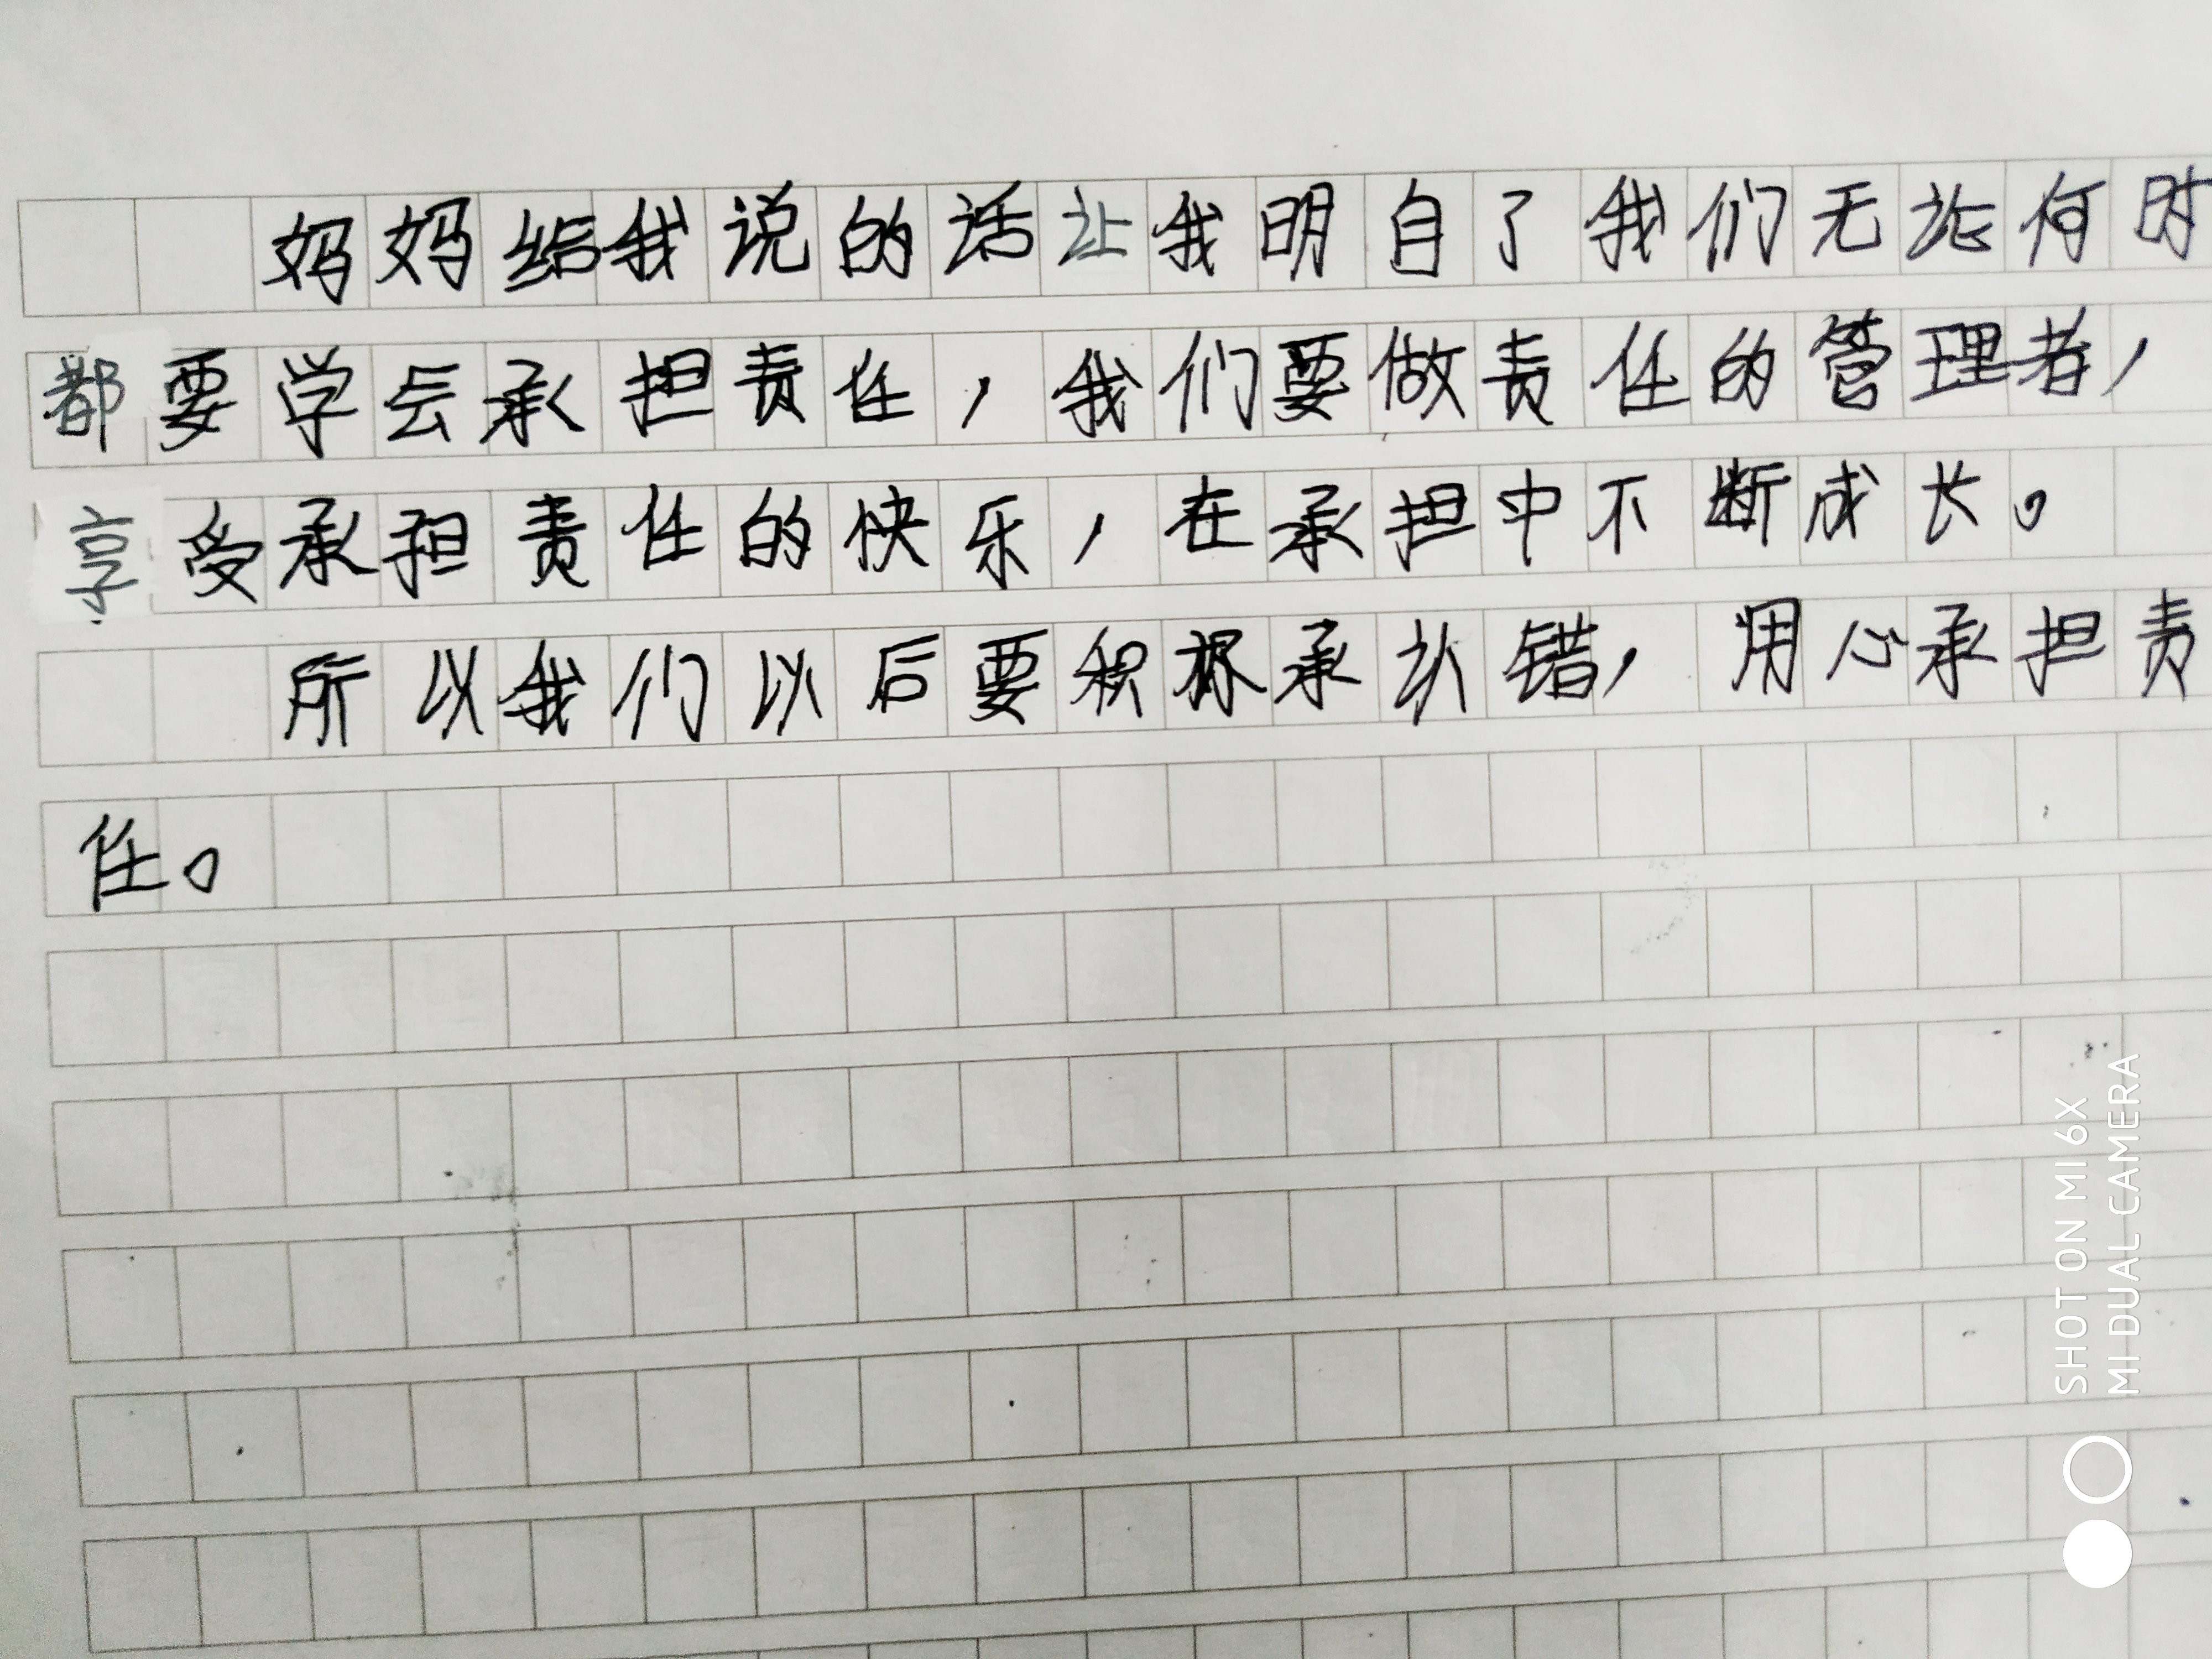 妈妈给我说的话让我明自了我们无论何时
都要学会承担责任，我们要做责任的管理者，
享受承担责任的快乐，在承担中不断成长。
所以我们以后要积极承认错，用心承担责
任。
SHOT ON MI 6X
MI DUAL CAMERA